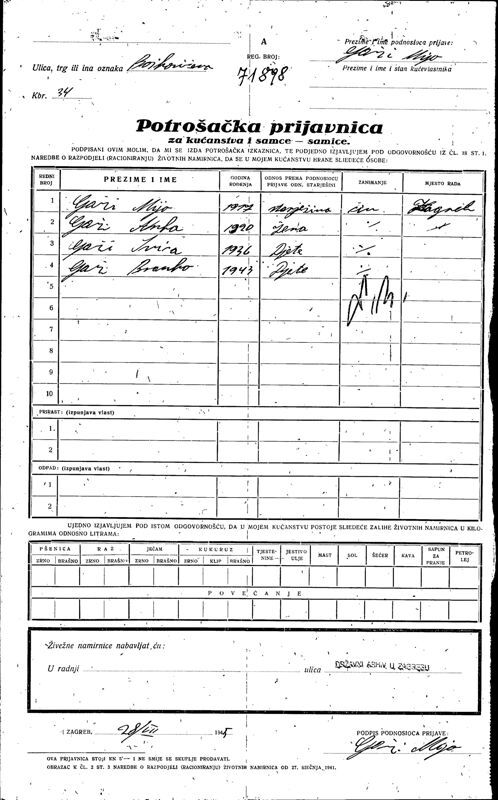 A
Prezime i ime podnosioca prijave:
Gaži Mijo
Ulica, trg ili ina oznaka Boškovićeva
REG. BROJ:
71898
Prezime i ime i stan kućevlasnika
Kbr. 34
Potrošačka prijavnica
za kućanstva i samce — samice.
POTPISANI OVIM MOLIM, DA MI SE IZDA POTROŠAČKA ISKAZNICA, TE PODJEDNO IZJAVLJUJEM POD ODGOVORNOŠĆU IZ ČL. 18 ST. 1.
NAREDBE O RAZPODJELI (RACIONIRANJU) ŽIVOTNIH NAMIRNICA, DA SE U MOJEM KUĆANSTVU HRANE SLIEDEĆE OSOBE:
REDNI BROJ PREZIME I IME GODINA RODJENJA ODNOS PREMA PODNOSIOCU PRIJAVE ODN. STARJEŠINI ZANIMANJE MJESTO RADA
1 Gaži Mijo starješina Zagreb
2 Gaži Anka 1920 žena
3 Gaži Ivica 1936 Djete
4 Gaži Branko 1943 Djete
5
6
7
8
9
10
PRIRAST: (izpunjava vlast)
1.
2
ODPAD: (izpunjava vlast)
1
2
UJEDNO IZJAVLJUJEM POD ISTOM ODGOVORNOŠĆU, DA U MOJEM KUĆANSTVU POSTOJE SLIEDEĆE ZALIHE ŽIVOTNIH NAMIRNICA U KILO-
GRAMIMA ODNOSNO LITRAMA:
PŠENICA RAŽ JEČAM KUKURUZ TJESTE-NINE JESTIVO ULJE MAST SOL ŠEĆER KAVA SAPUN ZA PRANJE PETRO-LEJ
ZRNO BRAŠNO ZRNO BRAŠNO ZRNO BRAŠNO ZRNO KLIP BRAŠNO
POVEĆANJE
Živežne namirnice nabavljat ću:
U radnji ulica DRŽAVNI ARHIV U ZAGREBU
ZAGREB, 28/VII 1945
POTPIS PODNOSIOCA PRIJAVE:
Gaži Mijo
OVA PRIJAVNICA STOJI KN 5— I NE SMIJE SE SKUPLJE PRODAVATI.
OBRAZAC K ČL. 2 ST. 3 NAREDBE O RAZPODJELI (RACIONIRANJU) ŽIVOTNIH NAMIRNICA OD 27. SIEČNJA 1941.